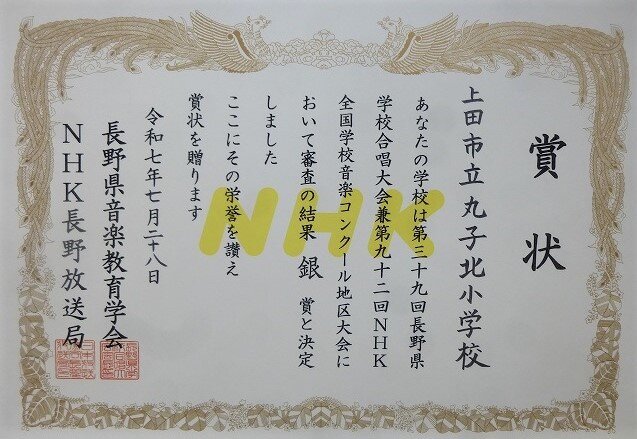 賞状
上田市立丸子北小学校
あなたの学校は第三十九回長野県
学校合唱大会兼第九十二回NHK
全国学校音楽コンクール地区大会に
おいて審査の結果 銀 賞と決定
しました
ここにその栄誉を讃え
賞状を贈ります
令和七年七月二十八日
長野県音楽教育学会
NHK長野放送局
NHK